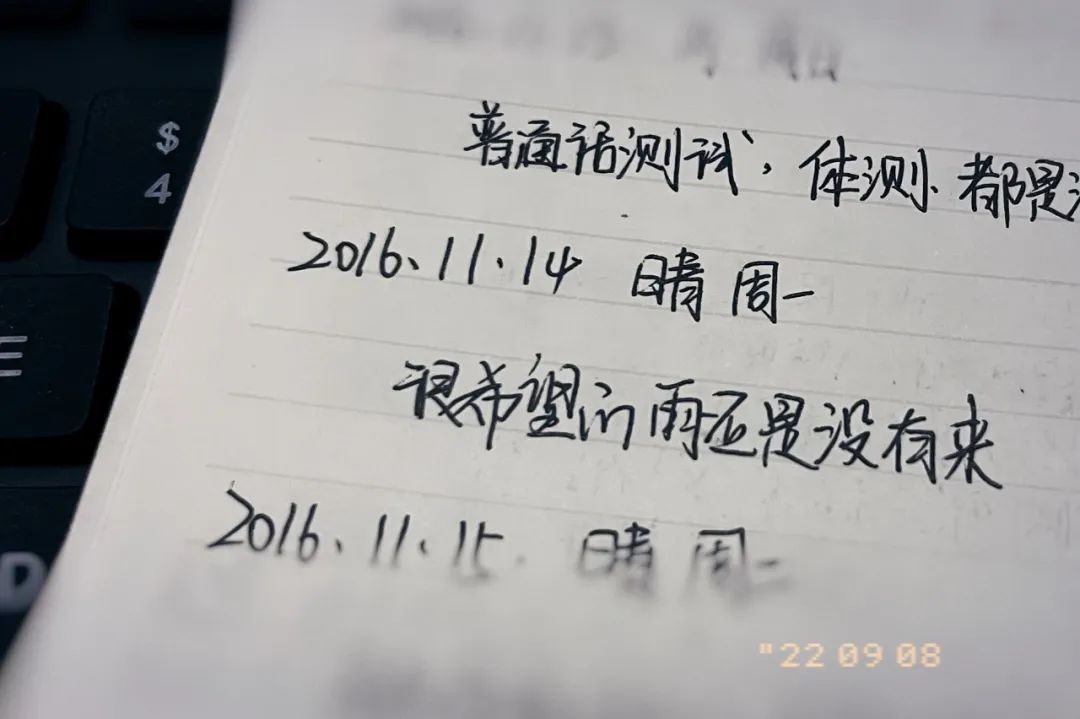 $
4
E
D
普通话测试、体测、都是
2016、11、14 晴 周一
很希望的雨还是没有来
2016、11、15 晴 周一
"22 09 08